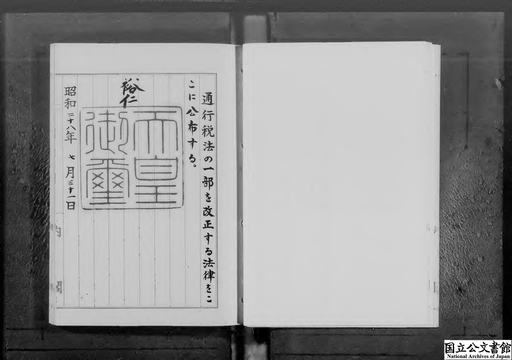 通行税法の一部を改正する法律をこ
こに公布する。
裕仁
天皇
御璽
昭和二十八年七月三十一日
国立公文書館
National Archives of Japan